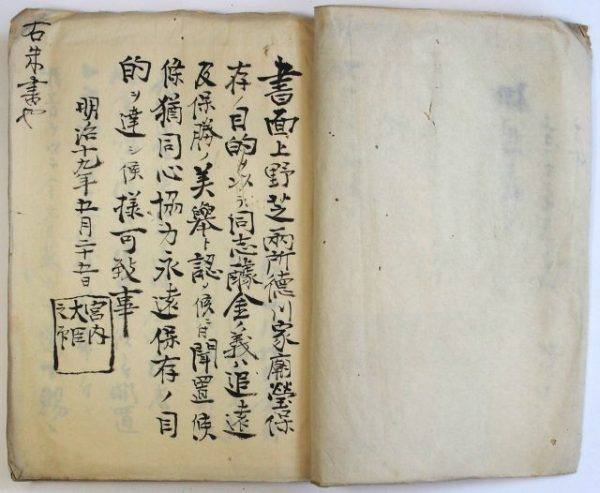 書面上野芝兩所徳川家廟塋保
存ノ目的ヲ以テ同志醵金ノ義ハ追遠
及保勝ノ美擧ト認メ候ニ付聞置候
條猶同心協力永遠保存ノ目
的ヲ達シ候様可致事
明治十九年五月二十五日
宮内
大臣
之印
右朱書也